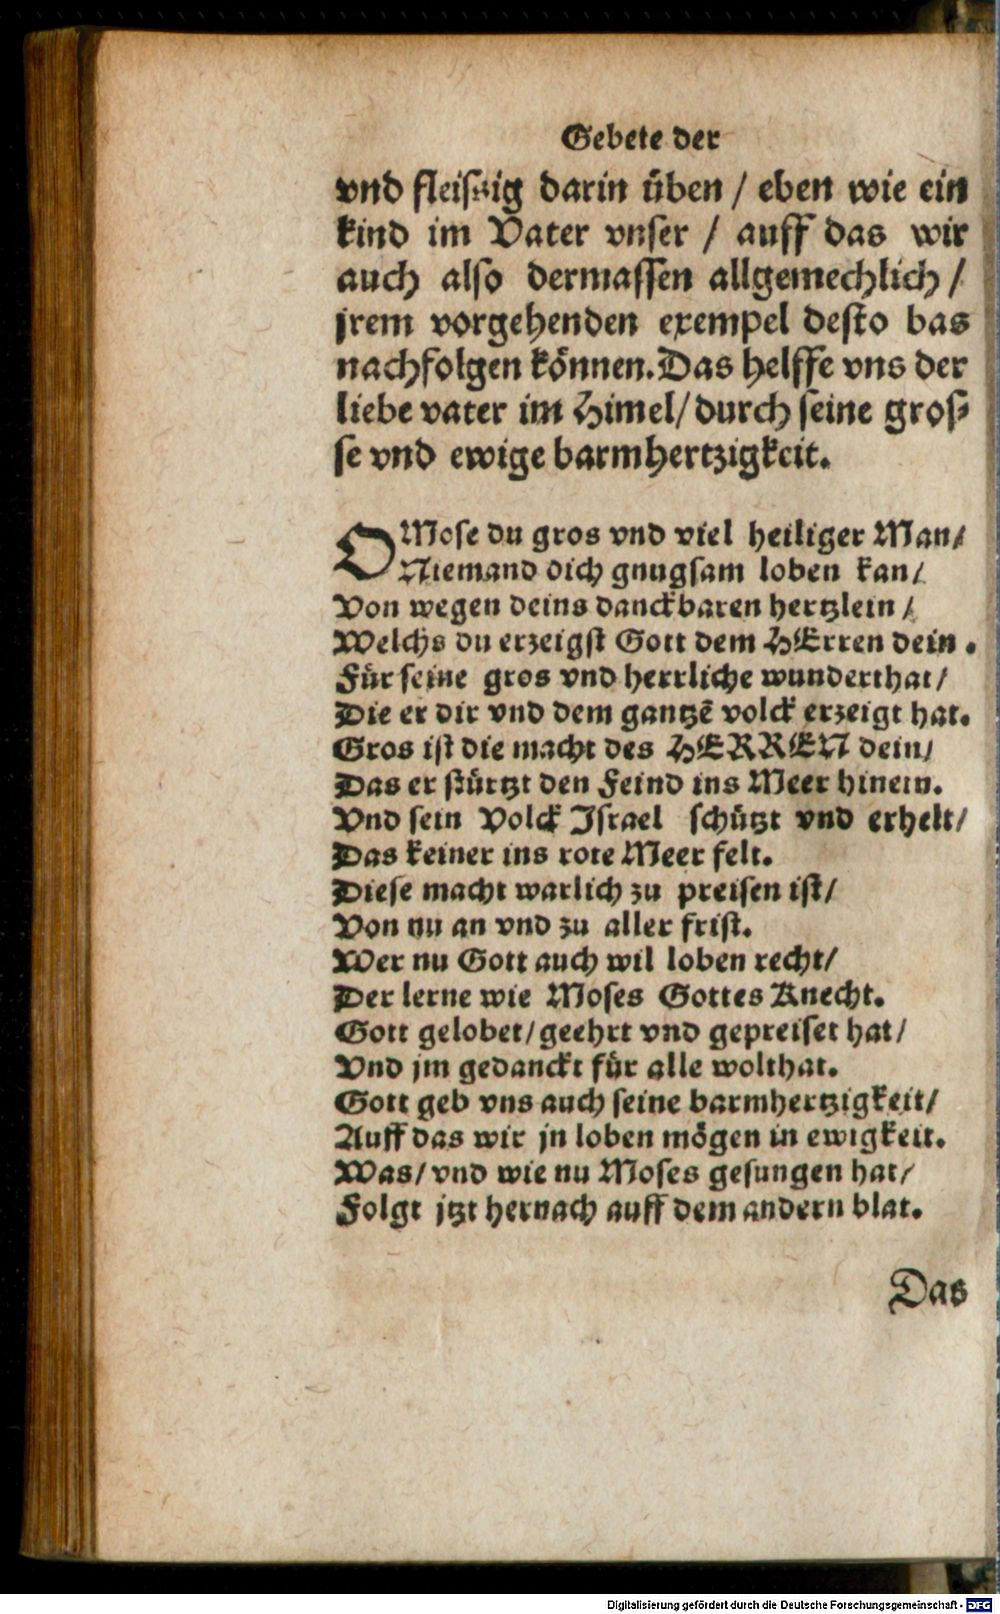 Gebete der
vnd fleissig darin üben / eben wie ein
kind im Vater vnser / auff das wir
auch also dermassen allgemechlich /
jrem vorgehenden exempel desto bas
nachfolgen können. Das helffe vns der
liebe vater im Himel / durch seine gros-
se vnd ewige barmhertzigkeit.
O Mose du gros vnd viel heiliger Man /
Niemand dich gnugsam loben kan /
Von wegen deins danckbaren hertzlein /
Welchs du erzeigst Gott dem HErren dein.
Für seine gros vnd herrliche wunderthat /
Die er dir vnd dem gantzē volck erzeigt hat.
Gros ist die macht des HERREN dein /
Das er stürtzt den Feind ins Meer hinein.
Vnd sein Volck Israel schützt vnd erhelt /
Das keiner ins rote Meer felt.
Diese macht warlich zu preisen ist /
Von nu an vnd zu aller frist.
Wer nu Gott auch wil loben recht /
Der lerne wie Moses Gottes Knecht.
Gott gelobet / geehrt vnd gepreiset hat /
Vnd jm gedanckt für alle wolthat.
Gott geb vns auch seine barmhertzigkeit /
Auff das wir jn loben mögen in ewigkeit.
Was / vnd wie nu Moses gesungen hat /
Folgt jtzt hernach auff dem andern blat.
Das
Digitalisierung gefördert durch die Deutsche Forschungsgemeinschaft - DFG